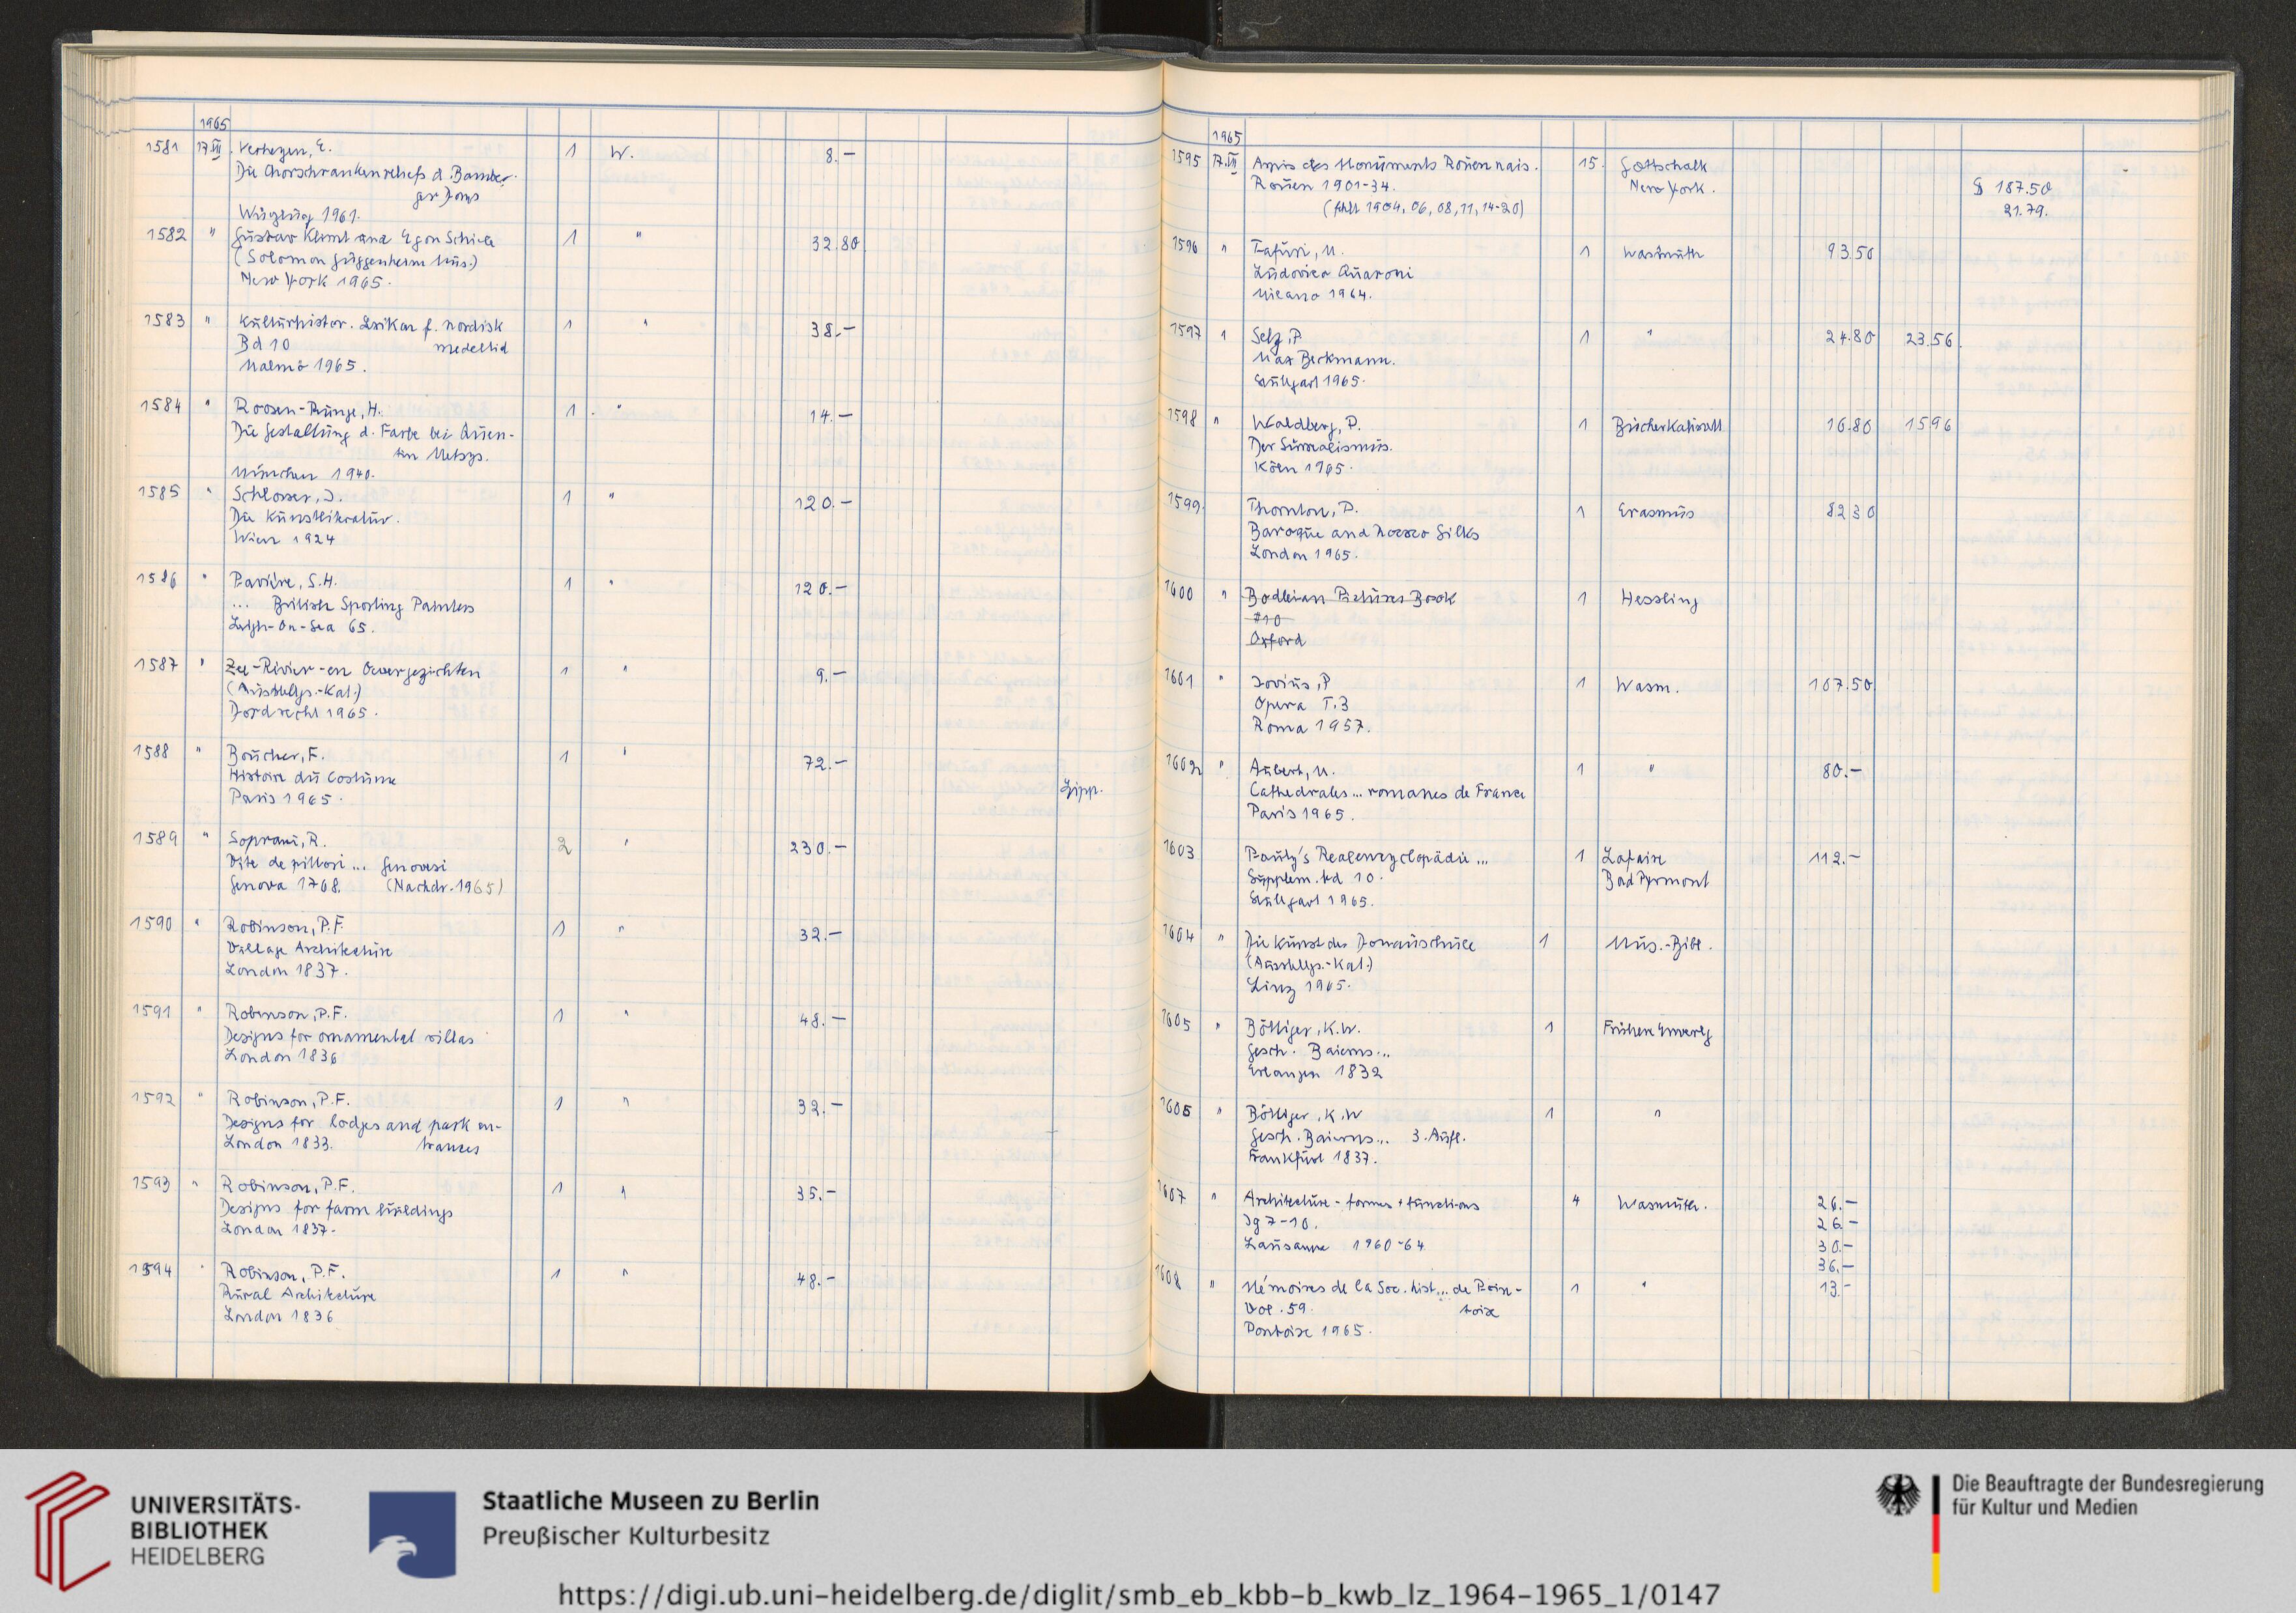 1965
1581 17.VII. Verheyen, E. 1 W. 8.–
Die Chorschrankenreliefs d. Bamber-
ger Doms
Würzburg 1961.
1582 " Gustav Klimt and Egon Schiele 1 " 32.80
(Solomon Guggenheim Mus.)
New York 1965.
1583 " Kulturhistor. Leksikon f. nordisk 1 " 38.–
Bd 10 medeltid
Malmö 1965.
1584 " Roosen-Runge, H. 1 " 14.–
Die Gestaltung d. Farbe bei Quen-
tin Metsys.
München 1940.
1585 " Schlosser, J. 1 " 120.–
Die Kunstliteratur.
Wien 1924
1586 " Pavière, S.H. 1 " 120.–
... British Sporting Painters
Leigh-On-Sea 65.
1587 " Zee-Rivier-en Oevergezichten 1 " 9.–
(Ausstellgs.-Kat.)
Dordrecht 1965.
1588 " Boucher, F. 1 " 72.–
Histoire du Costume
Paris 1965. Lipp.
1589 " Soprani, R. 2 " 230.–
Vite de pittori ... Genovesi
Genova 1768. (Nachdr. 1965)
1590 " Robinson, P.F. 1 " 32.–
Village Architecture
London 1837.
1591 " Robinson, P.F. 1 " 48.–
Designs for ornamental villas
London 1836
1592 " Robinson, P.F. 1 " 32.–
Designs for lodges and park en-
London 1833. trances
1593 " Robinson, P.F. 1 " 35.–
Designs for farm buildings
London 1837.
1594 " Robinson, P.F. 1 " 48.–
Rural Architecture
London 1836
1965
1595 17.VII Amis des Monuments Rouennais. 15. Gottschalk
Rouen 1901-34. New York. $ 187.50
(fehlt 1904, 06, 08, 11, 14-20) 21.79.
1596 " Tafuri, M. 1 Wasmuth 93.50
Ludovico Quaroni
Milano 1964.
1597 " Selz, P. 1 " 24.80 23.56
Max Beckmann.
Stuttgart 1965.
1598 " Waldberg, P. 1 16.80 1596
Der Surrealismus.
Köln 1965.
1599. Thornton, P. 1 Erasmus 82 30
Baroque and Rococo Silks
London 1965.
1600 " Bodleian Picture Book 1 Hessling
#10
Oxford
1601 " Jovius, P 1 Wasm. 107.50
Opera T.3
Roma 1957.
1602 " Aubert, M. 1 " 80.–
Cathedrales ... romanes de France
Paris 1965.
1603 Pauly's Realencyclopädie ... 1 Lafaire 112.–
Supplem. bd 10. Bad Pyrmont
Stuttgart 1965.
1604 " Die Kunst der Donauschule 1 Mus.-Bibl.
(Ausstellgs.-Kat.)
Linz 1965.
1605 " Böttiger, K.W. 1
Gesch. Baierns...
Erlangen 1832
1606 " Böttiger, K.W 1 "
Gesch. Baierns... 3. Aufl.
Frankfurt 1837.
1607 " Architecture - formes + functions 4 Wasmuth. 26.–
Jg 7-10. 26.–
Lausanne 1960-64 30.–
36.–
1608 " Mémoires de la Soc. hist... de Pon- 1 " 13.–
Vol. 59. toise
Pontoise 1965.
UNIVERSITÄTS-
BIBLIOTHEK
HEIDELBERG
Staatliche Museen zu Berlin
Preußischer Kulturbesitz
Die Beauftragte der Bundesregierung
für Kultur und Medien
https://digi.ub.uni-heidelberg.de/diglit/smb_eb_kbb-b_kwb_lz_1964-1965_1/0147